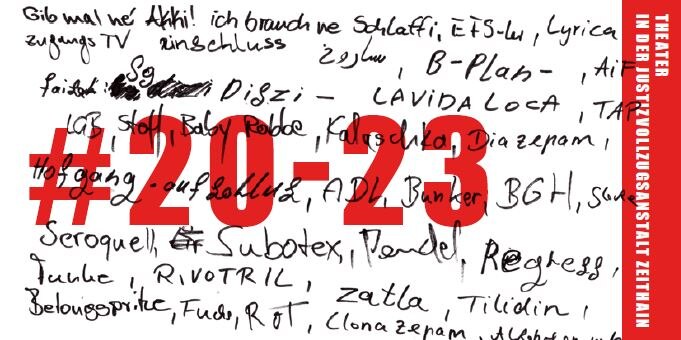 Gib mal ne Akki! ich brauch ne Schlaffi, EFS-ler, Lyrica
zugangs TV einschluss
B-Plan-, AiF
Sg
Diszi - LAVIDA LOCA, TAP
IGB, Stoff, Baby Robbe, Kalaschka, Diazepam,
#20-23
Hofgang-aufschluß, ADL, Bunker, BGH,
Seroquell, Subotex, Pendel, Regress,
Tunke, RIVOTRIL, Zatla, Tilidin,
Betonspritze, Fuchs, ROT, Clonazepam,
THEATER
IN DER JUSTIZVOLLZUGSANSTALT ZEITHAIN